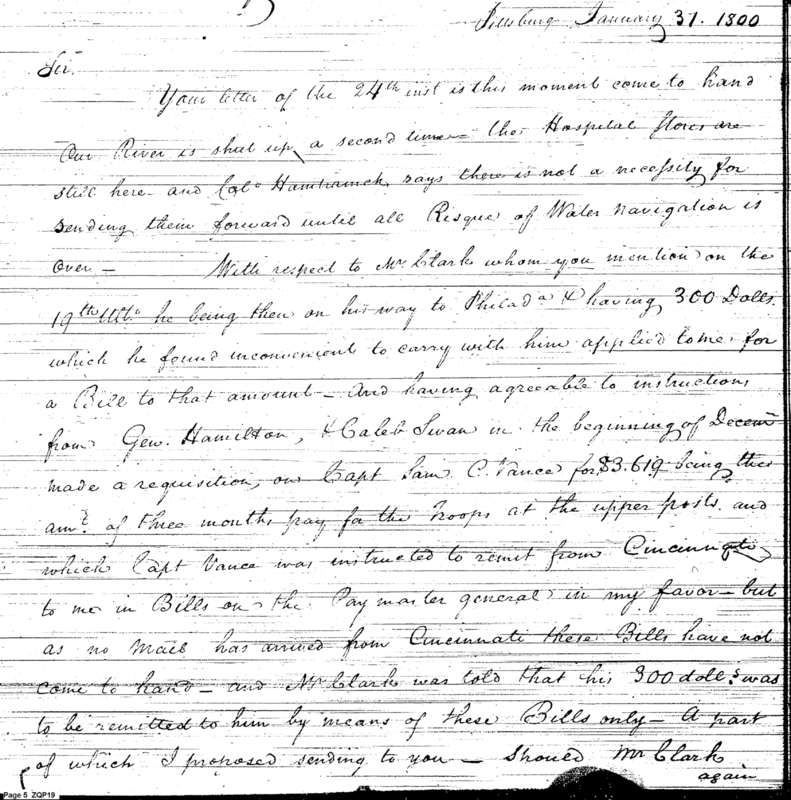 Pittsburg January 31. 1800
Sir.
Your letter of the 24th inst is this moment come to hand
Our River is shut up a second time – the Hospital stores are
still here and Colo Hamtramck says there is not a necessity for
sending them forward until all Risque of Water navigation is
over – With respect to Mr Clark whom you mention on the
19th Ulto he being then on his way to Philada & having 300 Dolls.
which he found inconvenient to carry with him applied to me for
a Bill to that amount – And having agreeable to instructions
from Gen. Hamilton, & Caleb Swan in the beginning of Decemr
made a requisition on Capt Sam. C. Vance for $3.619 being the
amt. of three months pay for the Troops at the upper posts and
which Capt Vance was instructed to remit from Cincinnati
to me in Bills on the Paymaster general in my favor – but
as no Mail has arrived from Cincinnati these Bills have not
come to hand – and Mr Clark was told that his 300 dolls. was
to be remitted to him by means of these Bills only – A part
of which I proposed sending to you – Should Mr Clark
again
Page 5 ZQP19